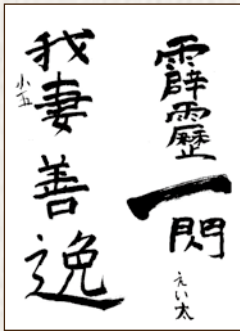 霹靂一閃
えい太
我妻善逸
小五